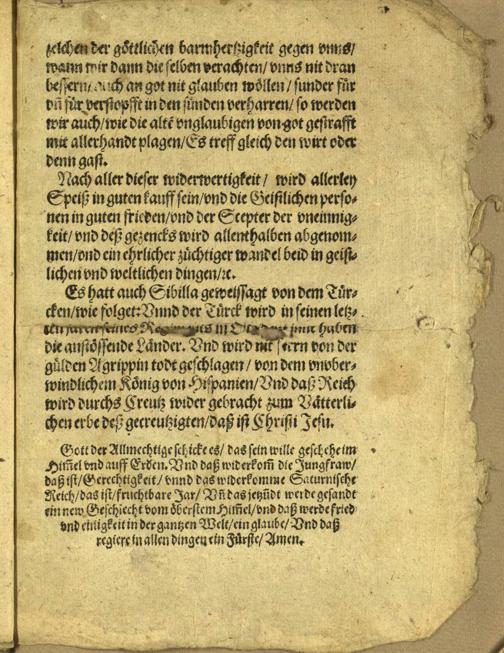 zeichen der göttlichen barmhertzigkeit gegen vnns/
wann wir dann die selben verachten/ vnns nit dran
bessern/ auch an got nit glauben wöllen/ sunder für
vñ für verstopfft in den sünden verharren/ so werden
wir auch/ wie die altẽ vnglaubigen von got gestrafft
mit allerhandt plagen/ Es treff gleich den wirt oder
denn gast.
Nach aller dieser widerwertigkeit/ wird allerley
Speiß in guten kauff sein/ vnd die Geistlichen perso-
nen in guten frieden/ vnd der Scepter der vneinnig-
keit/ vnd deß gezencks wird allenthalben abgenom-
men/ ond ein ehrlicher züchtiger wandel beid in geist-
lichen vnd weltlichen dingen/ ꝛc.
Es hatt auch Sibilla geweissagt von dem Tür-
cken/ wie folget: Vnnd der Türck wird in seinen letz-
ten jaren seines in haben
die anstössende Länder. Vnd wird nit fern von der
gülden Agrippin todt geschlagen/ von dem vnober-
windlichem König von Hispanien/ Vnd daß Reich
wird durchs Creutz wider gebracht zum Vätterli-
chen erbe deß gecreutzigten/ daß ist Christi Jesu.
Gott der Allmechtige schicke es/ das sein wille geschehe im
Him̃el vnd auff Erden. Vnd daß widerkom̃ die Jungfraw/
daß ist/ Gerechtigkeit/ vnnd das widerkomme Saturnische
Reich/ das ist/ fruchtbare Jar/ Vñ das jetzüdt werde gesandt
ein new Geschlecht vom öberstem Him̃el/ vnd daß werde fried
vnd einigkeit in der gantzen Welt/ ein glaube/ Vnd daß
regiere in allen dingen ein Fürste/ Amen.